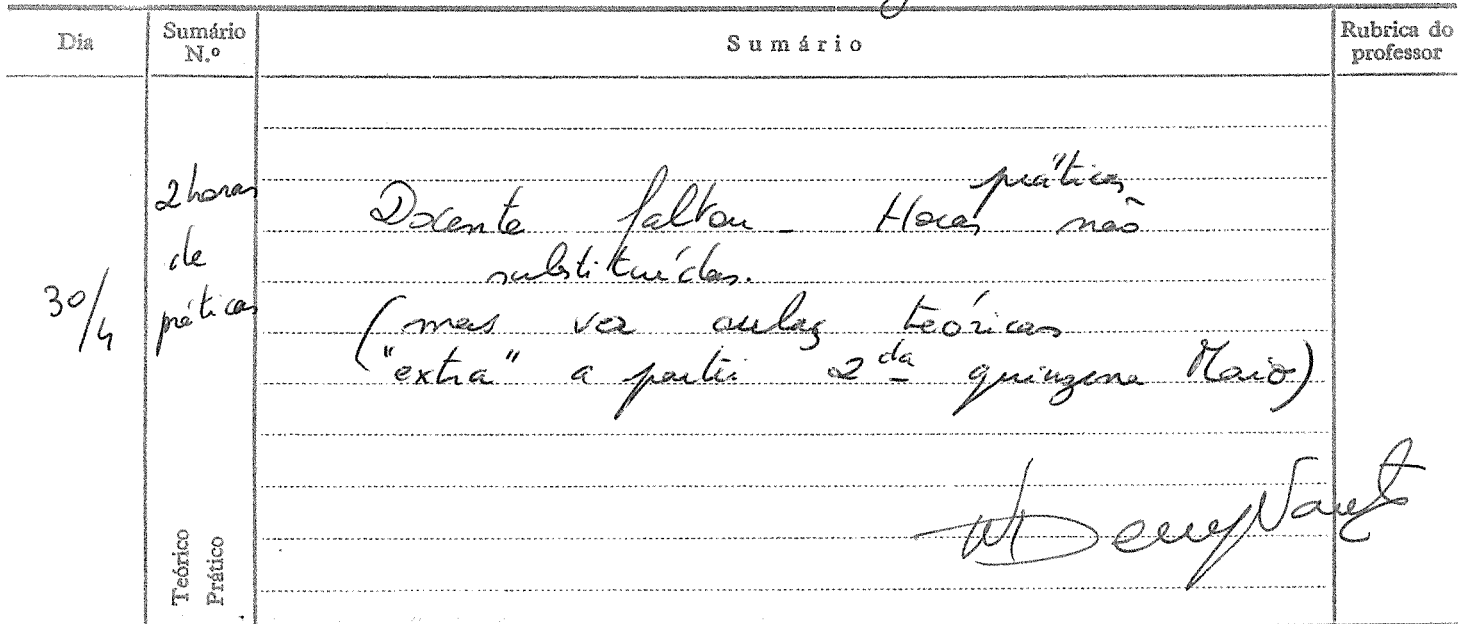 Dia
Sumário
N.º
Sumário
Rubrica do
professor
30/4
2 horas
de
práticas
práticas
Docente faltou - Horas não
substituídas.
(mas ver aulas teóricas
"extra" a partir 2da quinzena Maio)
Teórico
Prático